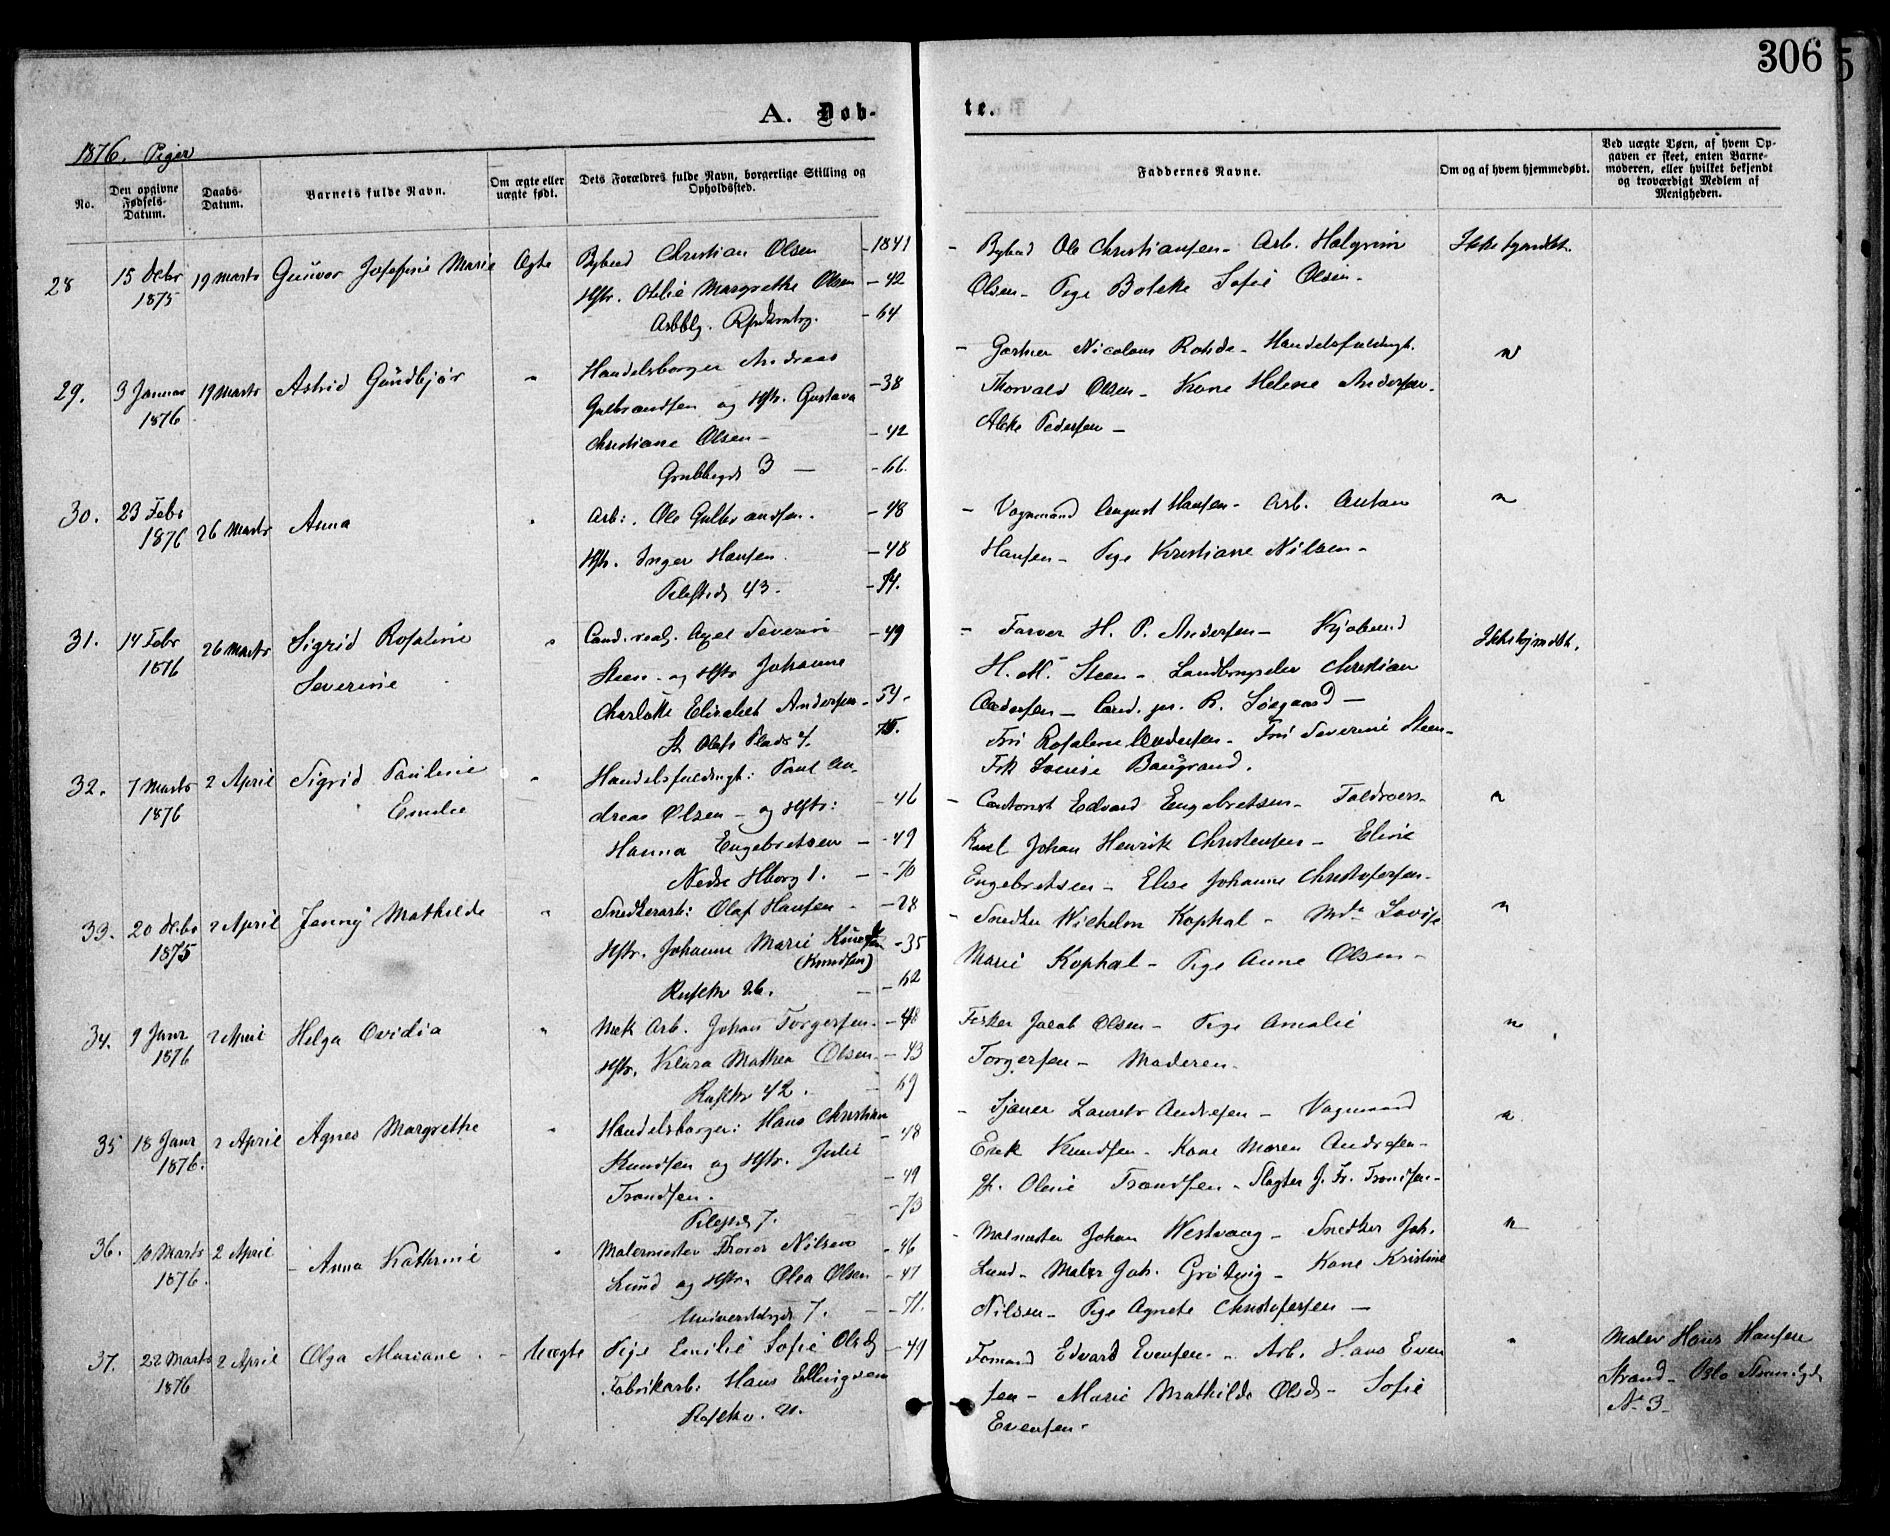 306
A. Døb-
te.
1876. Piger
No.
Den opgivne Fødsels-Datum.
Daabs-Datum.
Barnets fulde Navn.
Om ægte eller uægte født.
Dets Forældres fulde Navn, borgerlige Stilling og Opholdssted.
Faddernes Navne.
Om og af hvem hjemmedøbt.
Ved uægte Børn, af hvem Op-
gaven er skeet, enten Barne-
moderen, eller hvilket bekjendt
og troværdigt Medlem af
Menigheden.
28 15 Debr 1875 19 Marts Gunvor Josefine Marie Ægte
Bybud Christian Olsen - 1841
Hstr. Otilie Margrethe Olsen - 42
- 64
- Bybud Ole Christiansen - Arb. Halgrim
Olsen - Pige Bolette Sofie Olsen -
29. 3 Januar 1876 19 Marts Astrid Gundbjør "
Handelsborger Andreas
Gulbrandsen og Hstr. Gustava - 38
Christiane Olsen - - 42
Grubbegd 3 - - 66.
- Gartner Nicolaus Rohde - Handelsfuldmgt.
Thorvald Olsen - Kone Helene Andersen -
Pedersen -
"
30. 23 Febr 1876 26 Marts Anna "
Arb: Ole Gulbrandsen. - 48
Hstr. Inger Hansen. - 48
Pilestrd 43. - 74.
- Vognmand August Hansen - Arb. Anton
Hansen - Pige Kristiane Nilsen -
"
31. 14 Febr 1876 26 Marts Sigrid Rosaline
Severine "
Cand. real. Axel Severin - 49
Steen - og Hstr Johanne
Charlotte Elisabet Andersen - 54 -
St Olafs Plads 7. 75.
- Farver H. P. Andersen - Kjøbmd
H. M. Steen - Christian
Andersen - Cand. jur. R. Søegaard -
Fru Rosaline Andersen - Fru Severine Steen -
Frk Louise Baugrand.
32. 7 Marts 1876 2 April Sigrid Pauline
Emilie "
Handelsfuldmgt: Paul An-
dreas Olsen - og Hstr: - 46
Hanna Engebretsen - - 49
Nedre Hborg 1. - - 70
- Contorist Edvard Engebretsen - Toldroers-
Karl Johan Henrik Christensen - Eline
Engebretsen - Elise Johanne Christofersen -
"
33. 20 Debr 1875 2 April Jenny Mathilde "
Snedkerarb: Olaf Hansen - - 28
Hstr. Johanne Marie - 35
(Knudsen)
26. - - 62
- Snedker Wilhelm Kophal - Lovise
Marie Kophal - Pige Anne Olsen -
"
34. 9 Janr 1876 2 April Helga Ovidia "
Mek Arb. Johan Torgersen. - 48
Hstr. Klara Mathea Olsen - - 43
42. - 69
Fisker Jacob Olsen - Pige Amalie
Torgersen - Moderen -
"
35 18 Janr 1876. 2 April Agnes Margrethe "
Handelsborger: Hans Christian
Knudsen og Hstr. Julie - 48
Trondsen. - 49
Pilestrd 7. - 73
- Sjauer Laurits Andresen - Vognmand
Erik Knudsen - Kone Maren Andresen -
Jf. Oline Trondsen - Slagter J. Fr. Trondsen -
"
36. 10 Marts 1876. 2 April - Anna Kathrine "
Malermester Thorer Nilsen - 46
Lund og Hstr. Olea Olsen - 47
Universitetsgd 7. - - 71.
- Malmester Johan Westvang - Snedker Joh.
Lund - Maler Joh. Grøtvig - Kone Kristine
Nilsen - Pige Agnete Christofersen -
"
37. 22 Marts 1876 2 April Olga Mariane. - Uægte
Pige Emilie Sofie Olsdtr - 49
Fabrikarb: Hans Ellingsen
Formand Edvard Evensen - Arb. Hans Even
sen - Marie Mathilde Olsdtr - Sofie
Evensen -
"
Maler Hans Hansen
Strand - Oslo
No 3 -